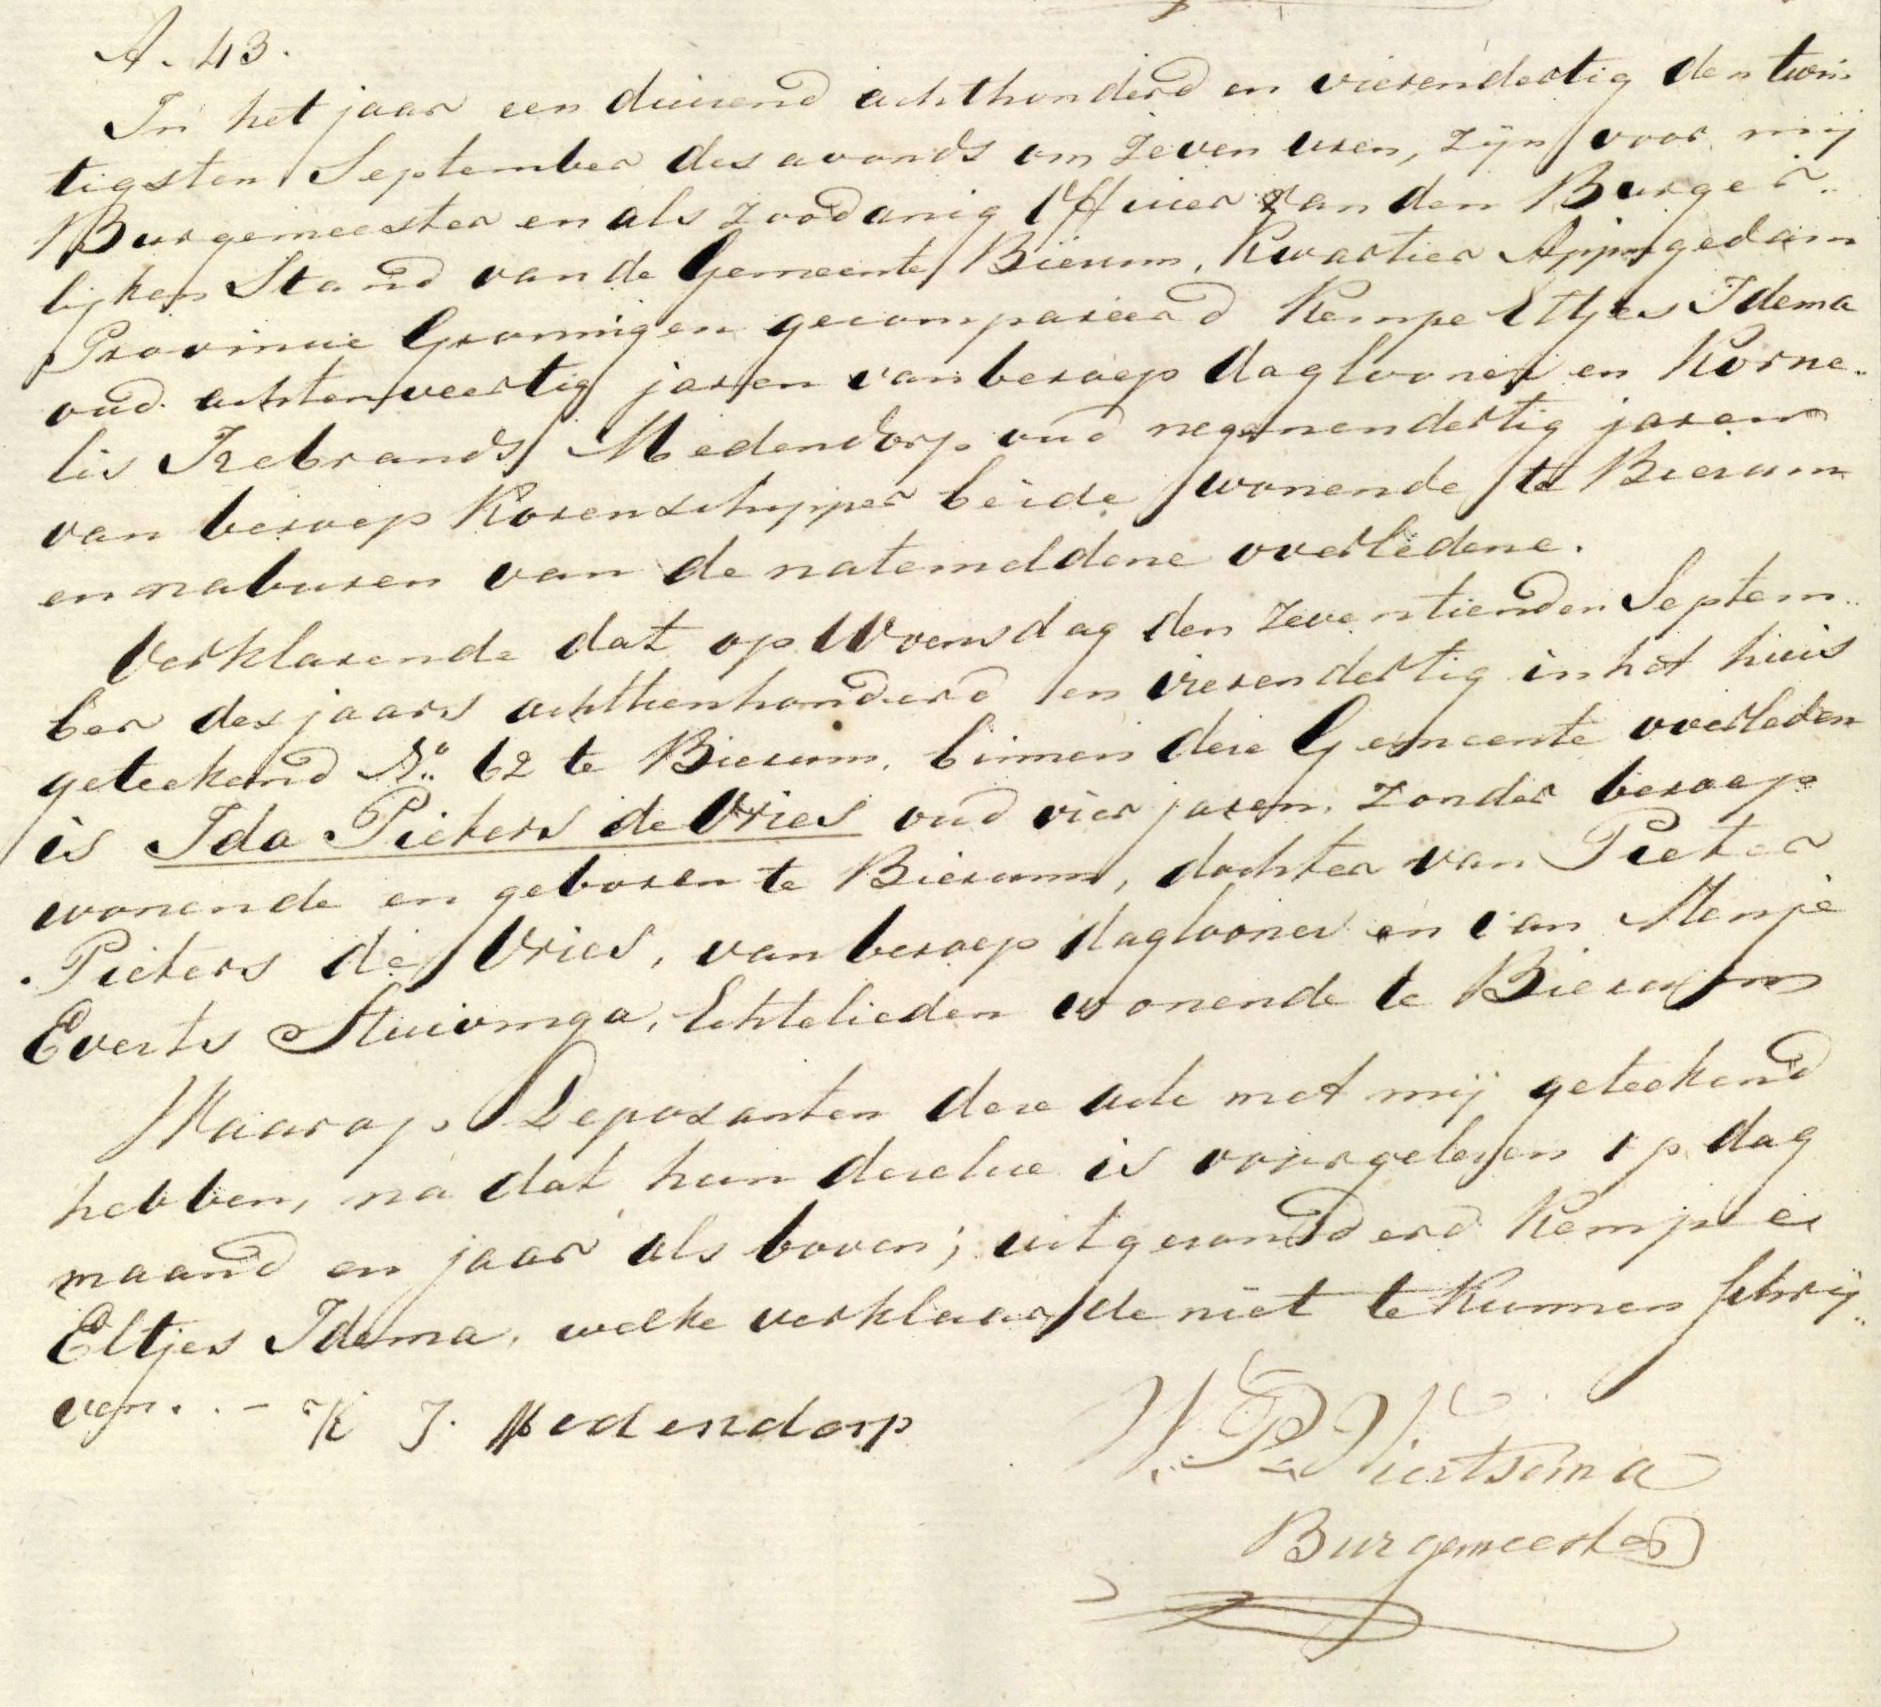 A. 43.
In het jaar een duizend achthonderd en vierendertig den twin
tigsten September des avonds om zeven uren, zijn voor mij
Burgemeester en als zoodanig Officier van den Burger..
lijken Stand van de Gemeente Bierum, Kwartier Appingedam
Provincie Groningen gecompareerd Kempe Eltjes Idema
oud achtenveertig jaren van beroep daglooner en Korne..
lis IJzebrands Medendorp oud negenendertig jaren
van beroep Korenschipper beide wonende te Bierum
en naburen van de natemeldene overledene.
Verklarende dat op Woensdag den zeventienden Septem..
ber des jaars achttienhonderd en vierendertig in het huis
geteekend No. 62 te Bierum, binnen deze Gemeente overleden
is Ida Pieters de Vries oud vier jaren, zonder beroep
wonende en geboren te Bierum, dochter van Pieter
Pieters de Vries, van beroep daglooner en van Menje
Everts Stuivinga, Echtelieden wonende te Bierum
Waarop Deposanten deze acte met mij geteekend
hebben, na dat hun dezelve is voorgelezen op dag
maand en jaar als boven; uitgezonderd Kempe
Eltjes Idema, welke verklaarde niet te kunnen schrij..
ven. . - K J. Medendorp
W. P. Wiertsema
Burgemeester